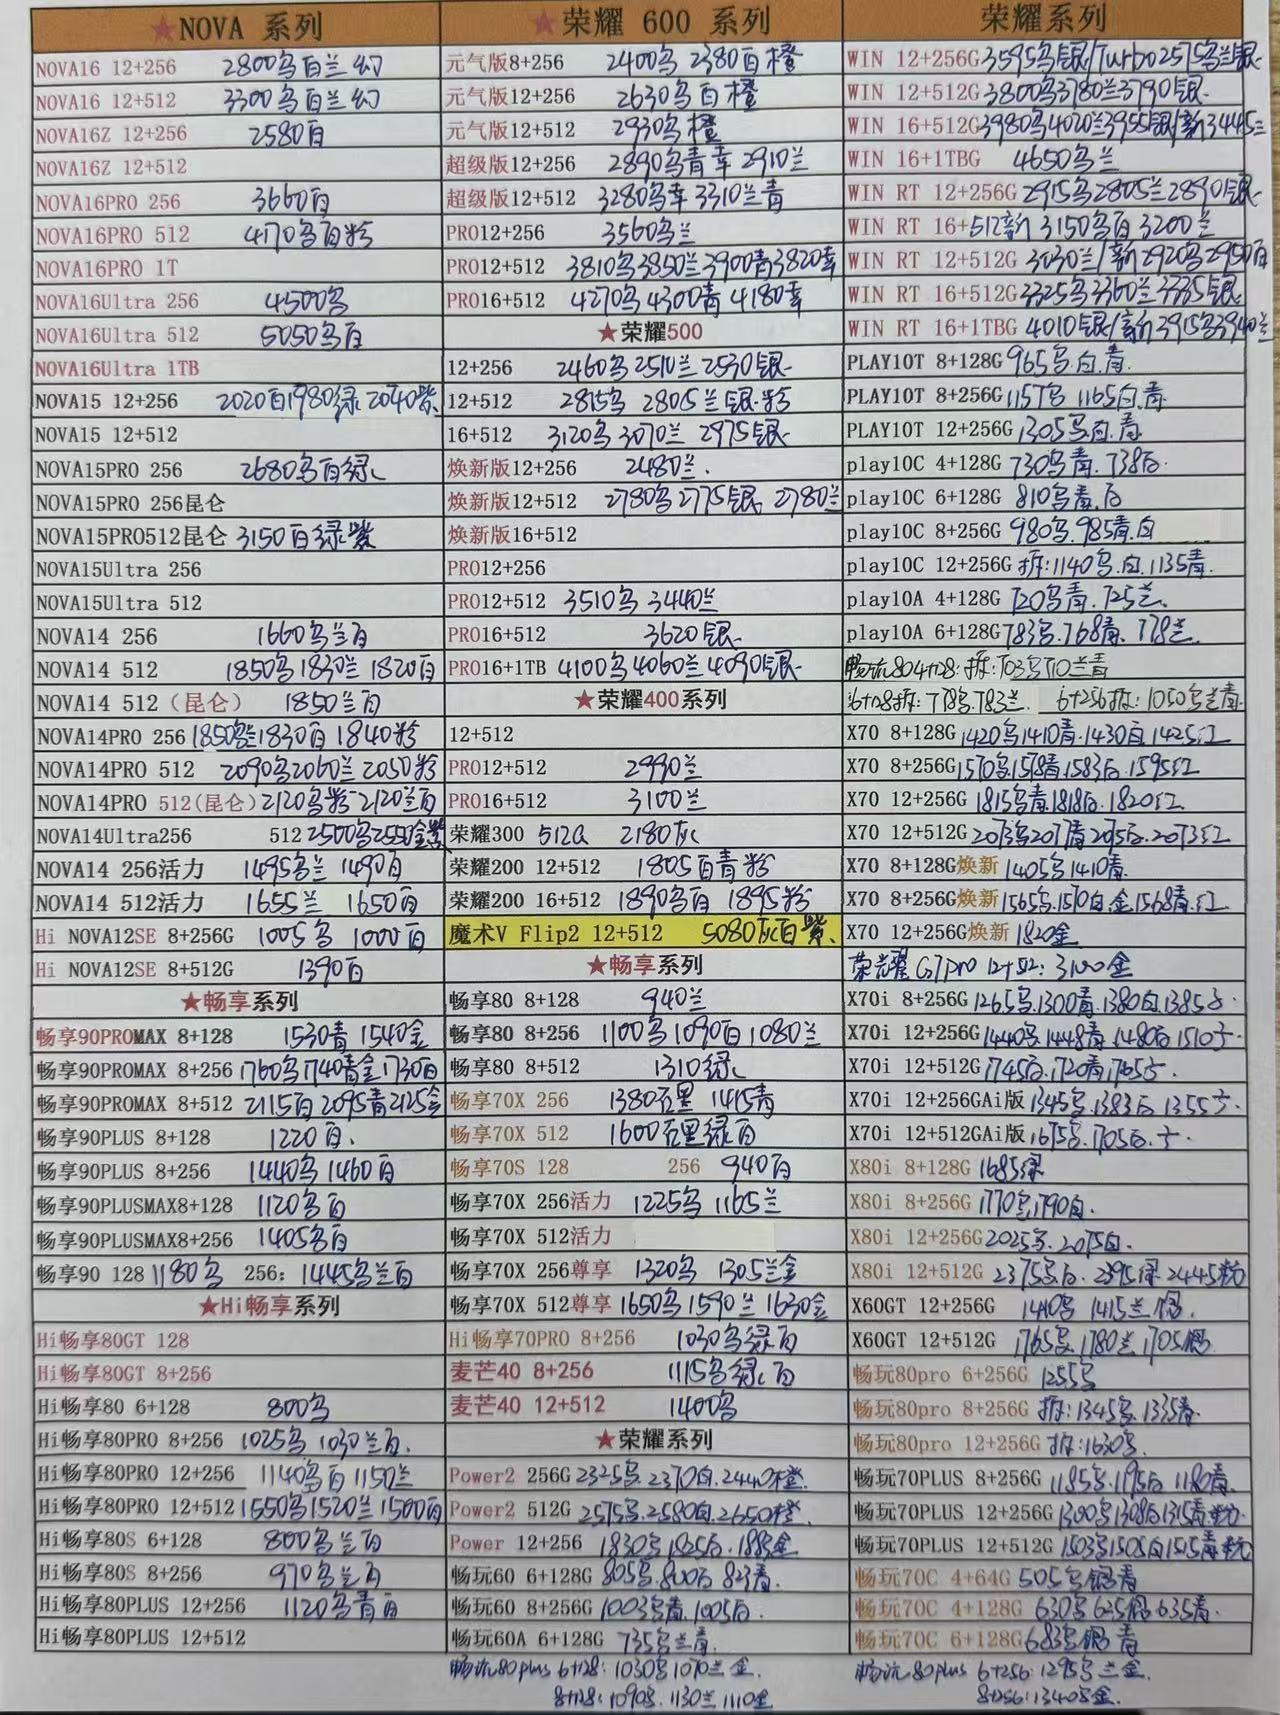 ★NOVA 系列
NOVA16 12+256 2800乌白兰幻
NOVA16 12+512 3300乌白兰幻
NOVA16Z 12+256 2580白
NOVA16Z 12+512
NOVA16PRO 256 3660白
NOVA16PRO 512 4170乌白粉
NOVA16PRO 1T
NOVA16Ultra 256 4500乌
NOVA16Ultra 512 5050乌白
NOVA16Ultra 1TB
NOVA15 12+256 2020白1980绿 2040紫
NOVA15 12+512
NOVA15PRO 256 2680乌白绿
NOVA15PRO 256昆仑
NOVA15PRO512昆仑 3150白绿紫
NOVA15Ultra 256
NOVA15Ultra 512
NOVA14 256 1660乌兰白
NOVA14 512 1850乌1830兰 1820白
NOVA14 512（昆仑） 1850兰白
NOVA14PRO 256 1850乌兰1830白 1840粉
NOVA14PRO 512 2090乌2060兰2050粉
NOVA14PRO 512(昆仑) 2120乌粉 2120兰白
NOVA14Ultra256 512 2500乌2550金紫
NOVA14 256活力 1495乌兰 1490白
NOVA14 512活力 1655兰 1650白
Hi NOVA12SE 8+256G 1005乌 1000白
Hi NOVA12SE 8+512G 1390白
★畅享系列
畅享90PROMAX 8+128 1530青 1540金
畅享90PROMAX 8+256 1760乌1740青金1730白
畅享90PROMAX 8+512 2115白2095青2125金
畅享90PLUS 8+128 1220白.
畅享90PLUS 8+256 1440乌 1460白
畅享90PLUSMAX8+128 1120乌白
畅享90PLUSMAX8+256 1405乌白
畅享90 128 1180乌 256: 1445乌兰白
★Hi畅享系列
Hi畅享80GT 128
Hi畅享80GT 8+256
Hi畅享80 6+128 800乌
Hi畅享80PRO 8+256 1025乌 1030兰白.
Hi畅享80PRO 12+256 1140乌白 1150兰
Hi畅享80PRO 12+512 1550乌1520兰 1500白
Hi畅享80S 6+128 800乌兰白
Hi畅享80S 8+256 970乌兰白
Hi畅享80PLUS 12+256 1120乌青白
Hi畅享80PLUS 12+512
★荣耀 600 系列
元气版8+256 2400乌 2380白橙
元气版12+256 2630乌白橙
元气版12+512 2930乌橙
超级版12+256 2890乌青幸 2910兰
超级版12+512 3280乌幸 3310兰青
PRO12+256 3560乌兰
PRO12+512 3810乌3850兰3900青3820幸
PRO16+512 4270乌4300青 4180幸
★荣耀500
12+256 2460乌 2510兰 2530银
12+512 2815乌 2805兰银.粉
16+512 3120乌3070兰 2975银
焕新版12+256 2480兰.
焕新版12+512 2780乌 2775银 2780兰
焕新版16+512
PRO12+256
PRO12+512 3510乌 3440兰
PRO16+512 3620银
PRO16+1TB 4100乌4060兰4090银
★荣耀400系列
12+512
PRO12+512 2990兰
PRO16+512 3100兰
荣耀300 512G 2180灰
荣耀200 12+512 1805白青粉
荣耀200 16+512 1890乌白 1895粉
魔术V Flip2 12+512 5080灰白紫
★畅享系列
畅享80 8+128 940兰
畅享80 8+256 1100乌1090白1080兰
畅享80 8+512 1310绿
畅享70X 256 1380黑 1415青
畅享70X 512 1600黑绿白
畅享70S 128 256 940白
畅享70X 256活力 1225乌 1165兰
畅享70X 512活力
畅享70X 256尊享 1320乌 1305兰金
畅享70X 512尊享 1650乌1590兰1630金
Hi畅享70PRO 8+256 1030乌绿白
麦芒40 8+256 1115乌绿白
麦芒40 12+512 1400乌
★荣耀系列
Power2 256G 2325乌.2370白.2440橙
Power2 512G 2575乌.2580白.2650橙
Power 12+256 1830乌.1835白.1885金
畅玩60 6+128G 805乌.800白 823青.
畅玩60 8+256G 1003乌青.1005白.
畅玩60A 6+128G 735乌兰青.
畅玩80plus 6+128: 1030乌1070兰金.
8+128: 1090乌.1130兰1110金
荣耀系列
WIN 12+256G 3595乌银/Turbo2575乌兰银
WIN 12+512G 3800乌3780兰3790银
WIN 16+512G 3980乌4020兰3955银/新3445兰
WIN 16+1TBG 4650乌兰
WIN RT 12+256G 2915乌2805兰2890银
WIN RT 16+512新 3150乌白 3200兰
WIN RT 12+512G 3030兰/新2920乌2950白
WIN RT 16+512G 3325乌3360兰3335银
WIN RT 16+1TBG 4010银/新3915乌3940兰
PLAY10T 8+128G 965乌.白.青
PLAY10T 8+256G 1157乌 1165白.青
PLAY10T 12+256G 1305乌.白.青
play10C 4+128G 730乌青.738白.
play10C 6+128G 810乌青.白
play10C 8+256G 980乌.985青.白
play10C 12+256G 拆:1140乌.白.1135青.
play10A 4+128G 720乌青.725兰.
play10A 6+128G 783乌.768青.778兰.
畅玩80 4+128:拆:703乌710兰青
6+128拆:778乌.783兰. 6+256拆:1050乌兰青
X70 8+128G 1420乌1410青.1430白.1425红
X70 8+256G 1570乌1578青1583白.1595红
X70 12+256G 1815乌青.1818白.1820红
X70 12+512G 2073乌2071青2075白.2073红
X70 8+128G焕新 1405乌1410青.
X70 8+256G焕新 1565乌.1570白.金1568青.红
X70 12+256G焕新 1820金.
荣耀 GT pro 12+512: 3100金
X70i 8+256G 1265乌.1300青.1380白.1385
X70i 12+256G 1440乌.1448青.1480白.1510
X70i 12+512G 1745白.1720青.1765
X70i 12+256GAi版 1345乌.1383白.1355
X70i 12+512GAi版 1675乌.1705白.
X80i 8+128G 1685绿
X80i 8+256G 1770乌.1790白.
X80i 12+256G 2025乌.2075白.
X80i 12+512G 2375乌白. 2395绿 2445粉
X60GT 12+256G 1410乌 1415兰.银.
X60GT 12+512G 1765乌.1780兰.1705银
畅玩80pro 6+256G 1255乌
畅玩80pro 8+256G 拆:1345乌.1335青.
畅玩80pro 12+256G 拆:1630乌.
畅玩70PLUS 8+256G 1185乌.1195白 1180青.
畅玩70PLUS 12+256G 1300乌1308白1315青.粉
畅玩70PLUS 12+512G 1503乌1505白1515青粉
畅玩70C 4+64G 505乌银青
畅玩70C 4+128G 630乌 645银 635青.
畅玩70C 6+128G 683乌银 青
畅玩80plus 6+256: 1295乌兰金.
8+256: 1340乌金.